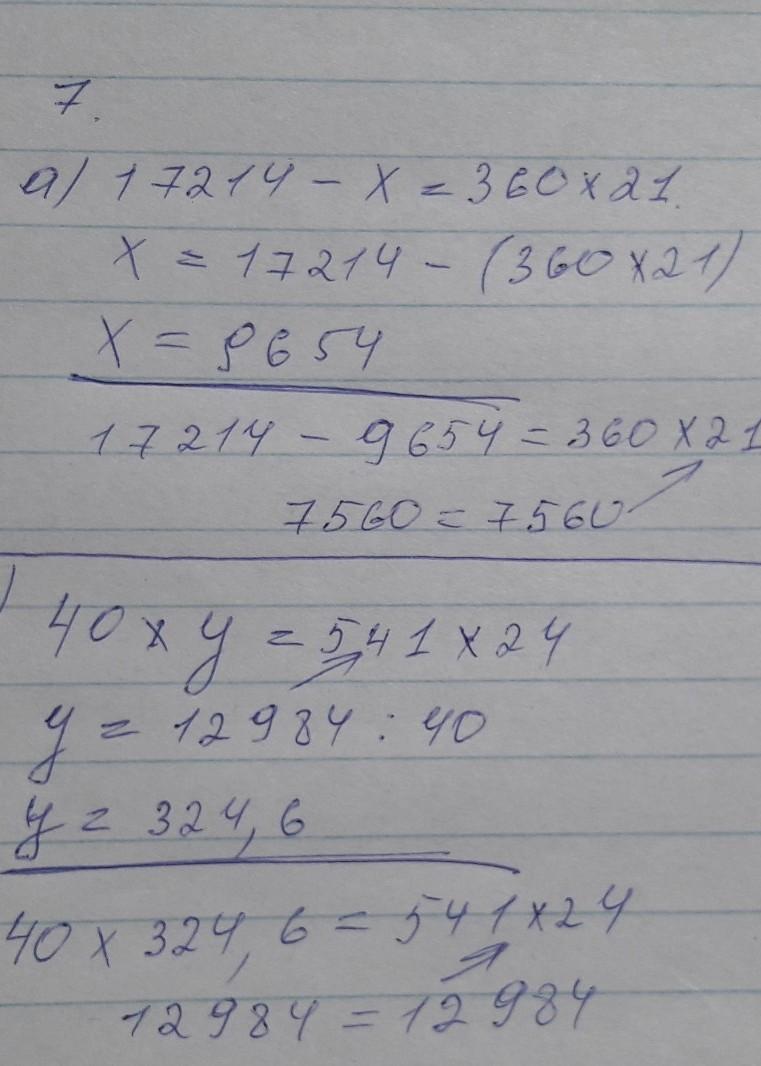 7.
а) 17214 - x = 360 x 21
x = 17214 - (360 x 21)
x = 9654
17214 - 9654 = 360 x 21
7560 = 7560
) 40 x y = 541 x 24
y = 12984 : 40
y = 324,6
40 x 324,6 = 541 x 24
12984 = 12984